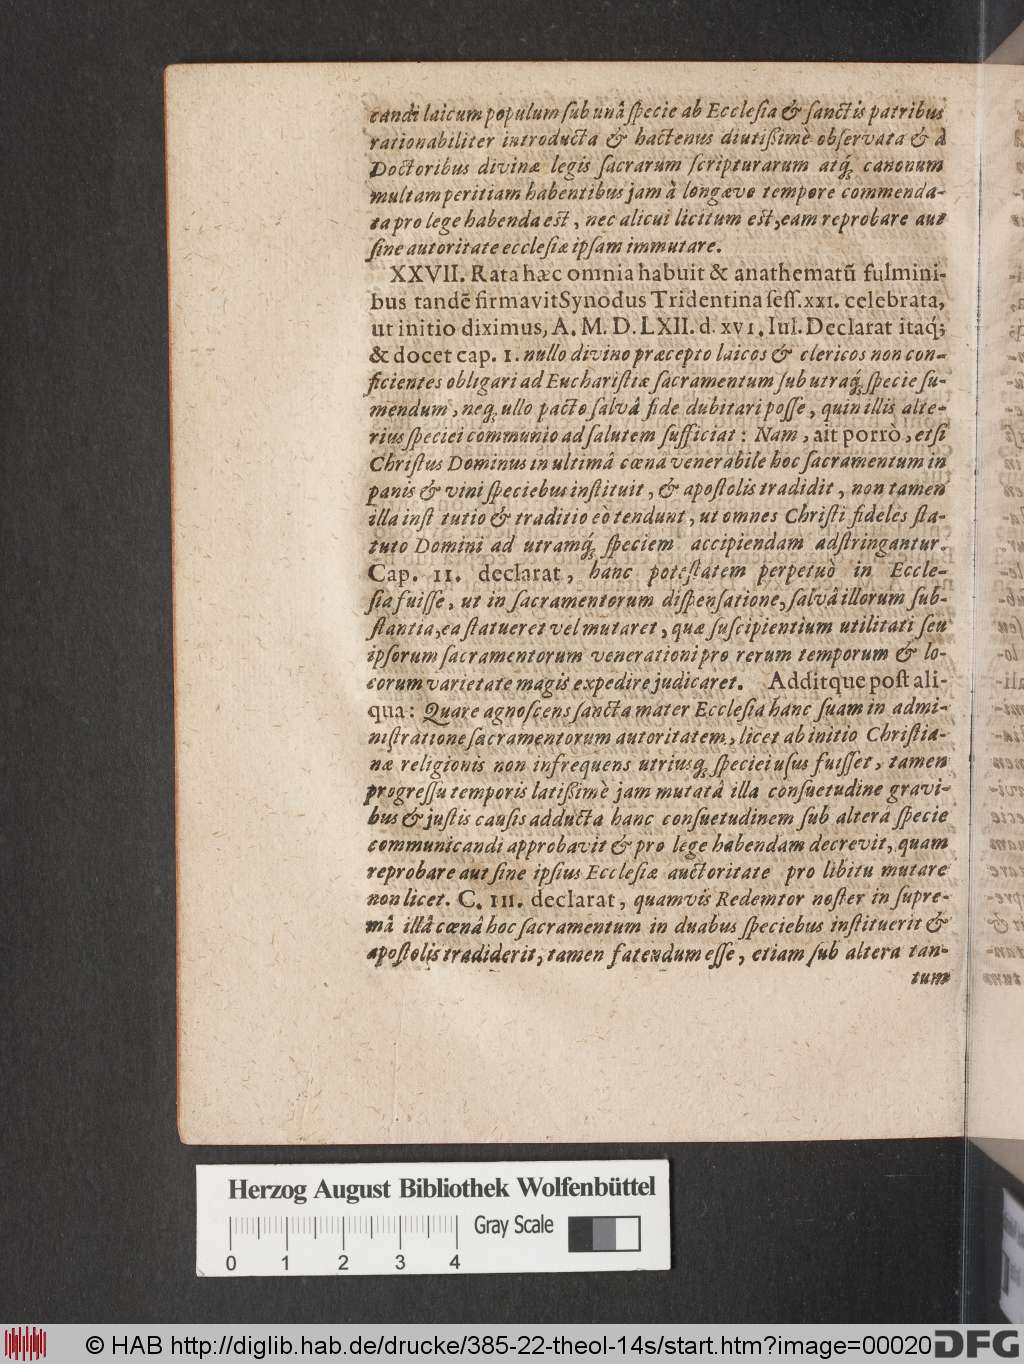 candi laicum populum ſub unâ ſpecie ab Eccleſia & ſanctis patribus
rationabiliter introducta & hactenus diutißimè obſervata & à
Doctoribus divinæ legis ſacrarum ſcripturarum atq́; canonum
multam peritiam habentibus jam à longævo tempore commenda-
ta pro lege habenda est, nec alicui licitum est, eam reprobare aut
ſine autoritate eccleſiæ ipſam immutare.
XXVII. Rata hæc omnia habuit & anathematũ fulmini-
bus tandẽ firmavit Synodus Tridentina ſeſſ. xxi. celebrata,
ut initio diximus, A. M. D. LXII. d. xvi. Iul. Declarat itaq́;
& docet cap. I. nullo divino præcepto laicos & clericos non con-
ficientes obligari ad Euchariſtiæ ſacramentum ſub utraq́; ſpecie ſu-
mendum, neq; ullo pacto ſalvâ fide dubitari poſſe, quin illis alte-
rius ſpeciei communio ad ſalutem ſufficiat: Nam, ait porrò, etſi
Chriſtus Dominus in ultimâ cœna venerabile hoc ſacramentum in
panis & vini ſpeciebus inſtituit, & apoſtolis tradidit, non tamen
illa inſt tutio & traditio eò tendunt, ut omnes Chriſti fideles ſta-
tuto Domini ad utramq́; ſpeciem accipiendam adſtringantur.
Cap. II. declarat, hanc poteſtatem perpetuò in Eccle-
ſia fuiſſe, ut in ſacramentorum diſpenſatione, ſalvâ illorum ſub-
ſtantia, ea ſtatueret vel mutaret, quæ ſuſcipientium utilitati ſeu
ipſorum ſacramentorum venerationi pro rerum temporum & lo-
corum varietate magis expedire judicaret. Additque poſt ali-
qua: Quare agnoſcens ſancta mater Eccleſia hanc ſuam in admi-
niſtratione ſacramentorum autoritatem, licet ab initio Chriſtia-
næ religionis non infrequens utriusq; ſpeciei uſus fuiſſet, tamen
progreſſu temporis latißimè jam mutatâ illa conſuetudine gravi-
bus & juſtis cauſis adducta hanc conſuetudinem ſub altera ſpecie
communicandi approbavit & pro lege habendam decrevit, quam
reprobare aut ſine ipſius Eccleſiæ auctoritate pro libitu mutare
non licet. C. III. declarat, quamvis Redemtor noſter in ſupre-
mâ illâ cœnâ hoc ſacramentum in duabus ſpeciebus inſtituerit &
apoſtolis tradiderit, tamen fatendum eſſe, etiam ſub altera tan-
tum
Herzog August Bibliothek Wolfenbüttel
Gray Scale
0 1 2 3 4
© HAB http://diglib.hab.de/drucke/385-22-theol-14s/start.htm?image=00020
DFG